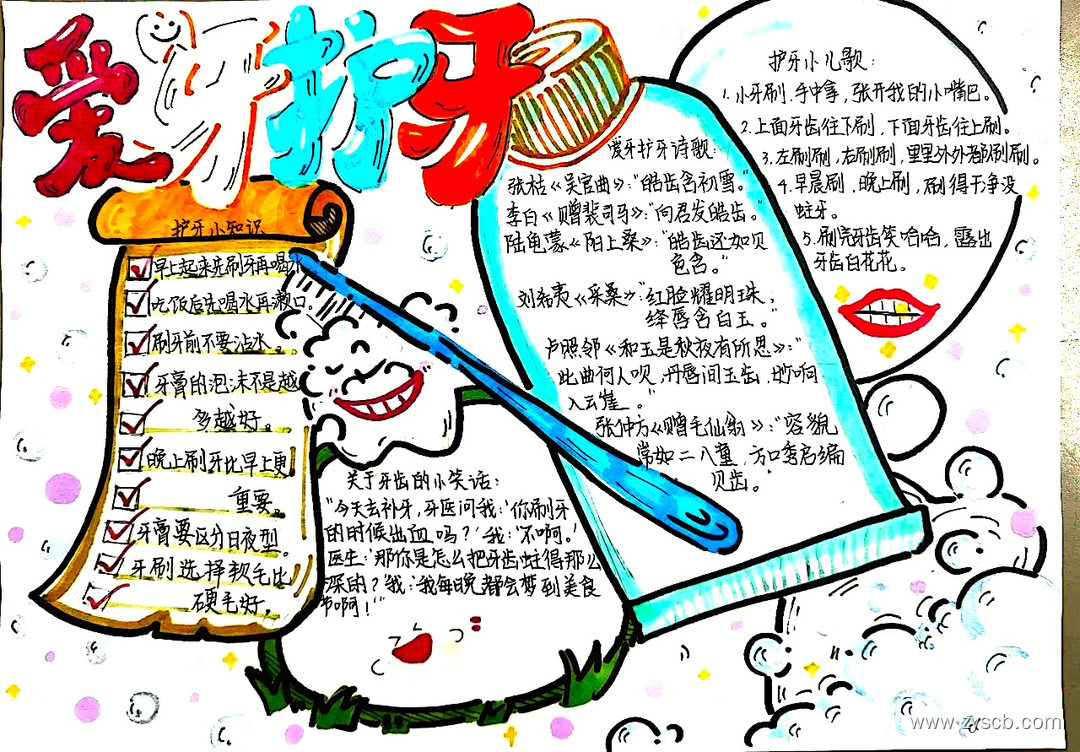 爱牙护牙
护牙小知识
早上起来先刷牙再喝水
吃饭后先喝水再漱口
刷牙前不要沾水。
牙膏的泡沫不是越
多越好。
晚上刷牙比早上更
重要。
牙膏要区分日夜型。
牙刷选择软毛比
硬毛好。
关于牙齿的小笑话:
"今天去补牙,牙医问我:'你刷牙
的时候出血吗?'我:'不啊。'
医生:'那你是怎么把牙齿蛀得那么
深的?'我:'我每晚都会梦到美食
节啊!'"
爱牙护牙诗歌:
张枯《吴宫曲》:"皓齿含初雪。"
李白《赠裴司马》:"向君发皓齿。"
陆龟蒙《陌上桑》:"皓齿还如贝
色含。"
刘希夷《采桑》:"红脸耀明珠,
绛唇含白玉。"
卢照邻《和王是秋夜有所思》:"
此曲何人呗,丹唇间玉齿,妙响
入云崖。"
张仲方《赠毛仙翁》:"容貌
常如二八童,方口秀启编
贝齿。"
护牙小儿歌:
1.小牙刷,手中拿,张开我的小嘴巴。
2.上面牙齿往下刷,下面牙齿往上刷。
3.左刷刷,右刷刷,里里外外都刷刷。
4.早晨刷,晚上刷,刷得干净没
蛀牙。
5.刷完牙齿笑哈哈,露出
牙齿白花花。
www.zyscb.com